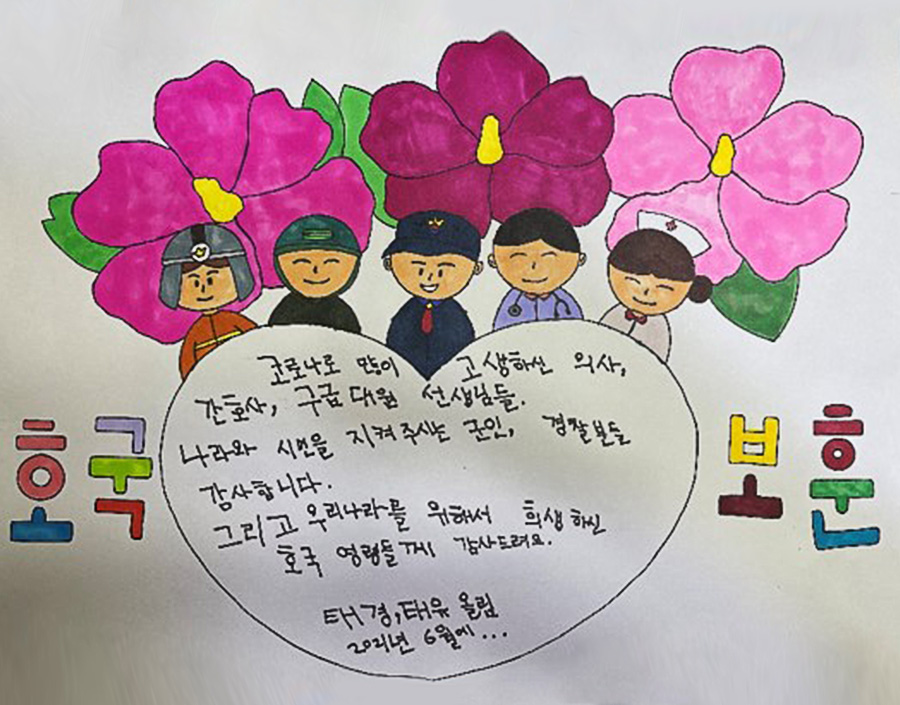 호국 보훈
코로나로 많이 고생하신 의사,
간호사, 구급대원 선생님들.
나라와 시민을 지켜주시는 군인, 경찰분들
감사합니다.
그리고 우리나라를 위해서 희생하신
호국 영령들께 감사드려요.
태경, 태유 올림
2021년 6월에...